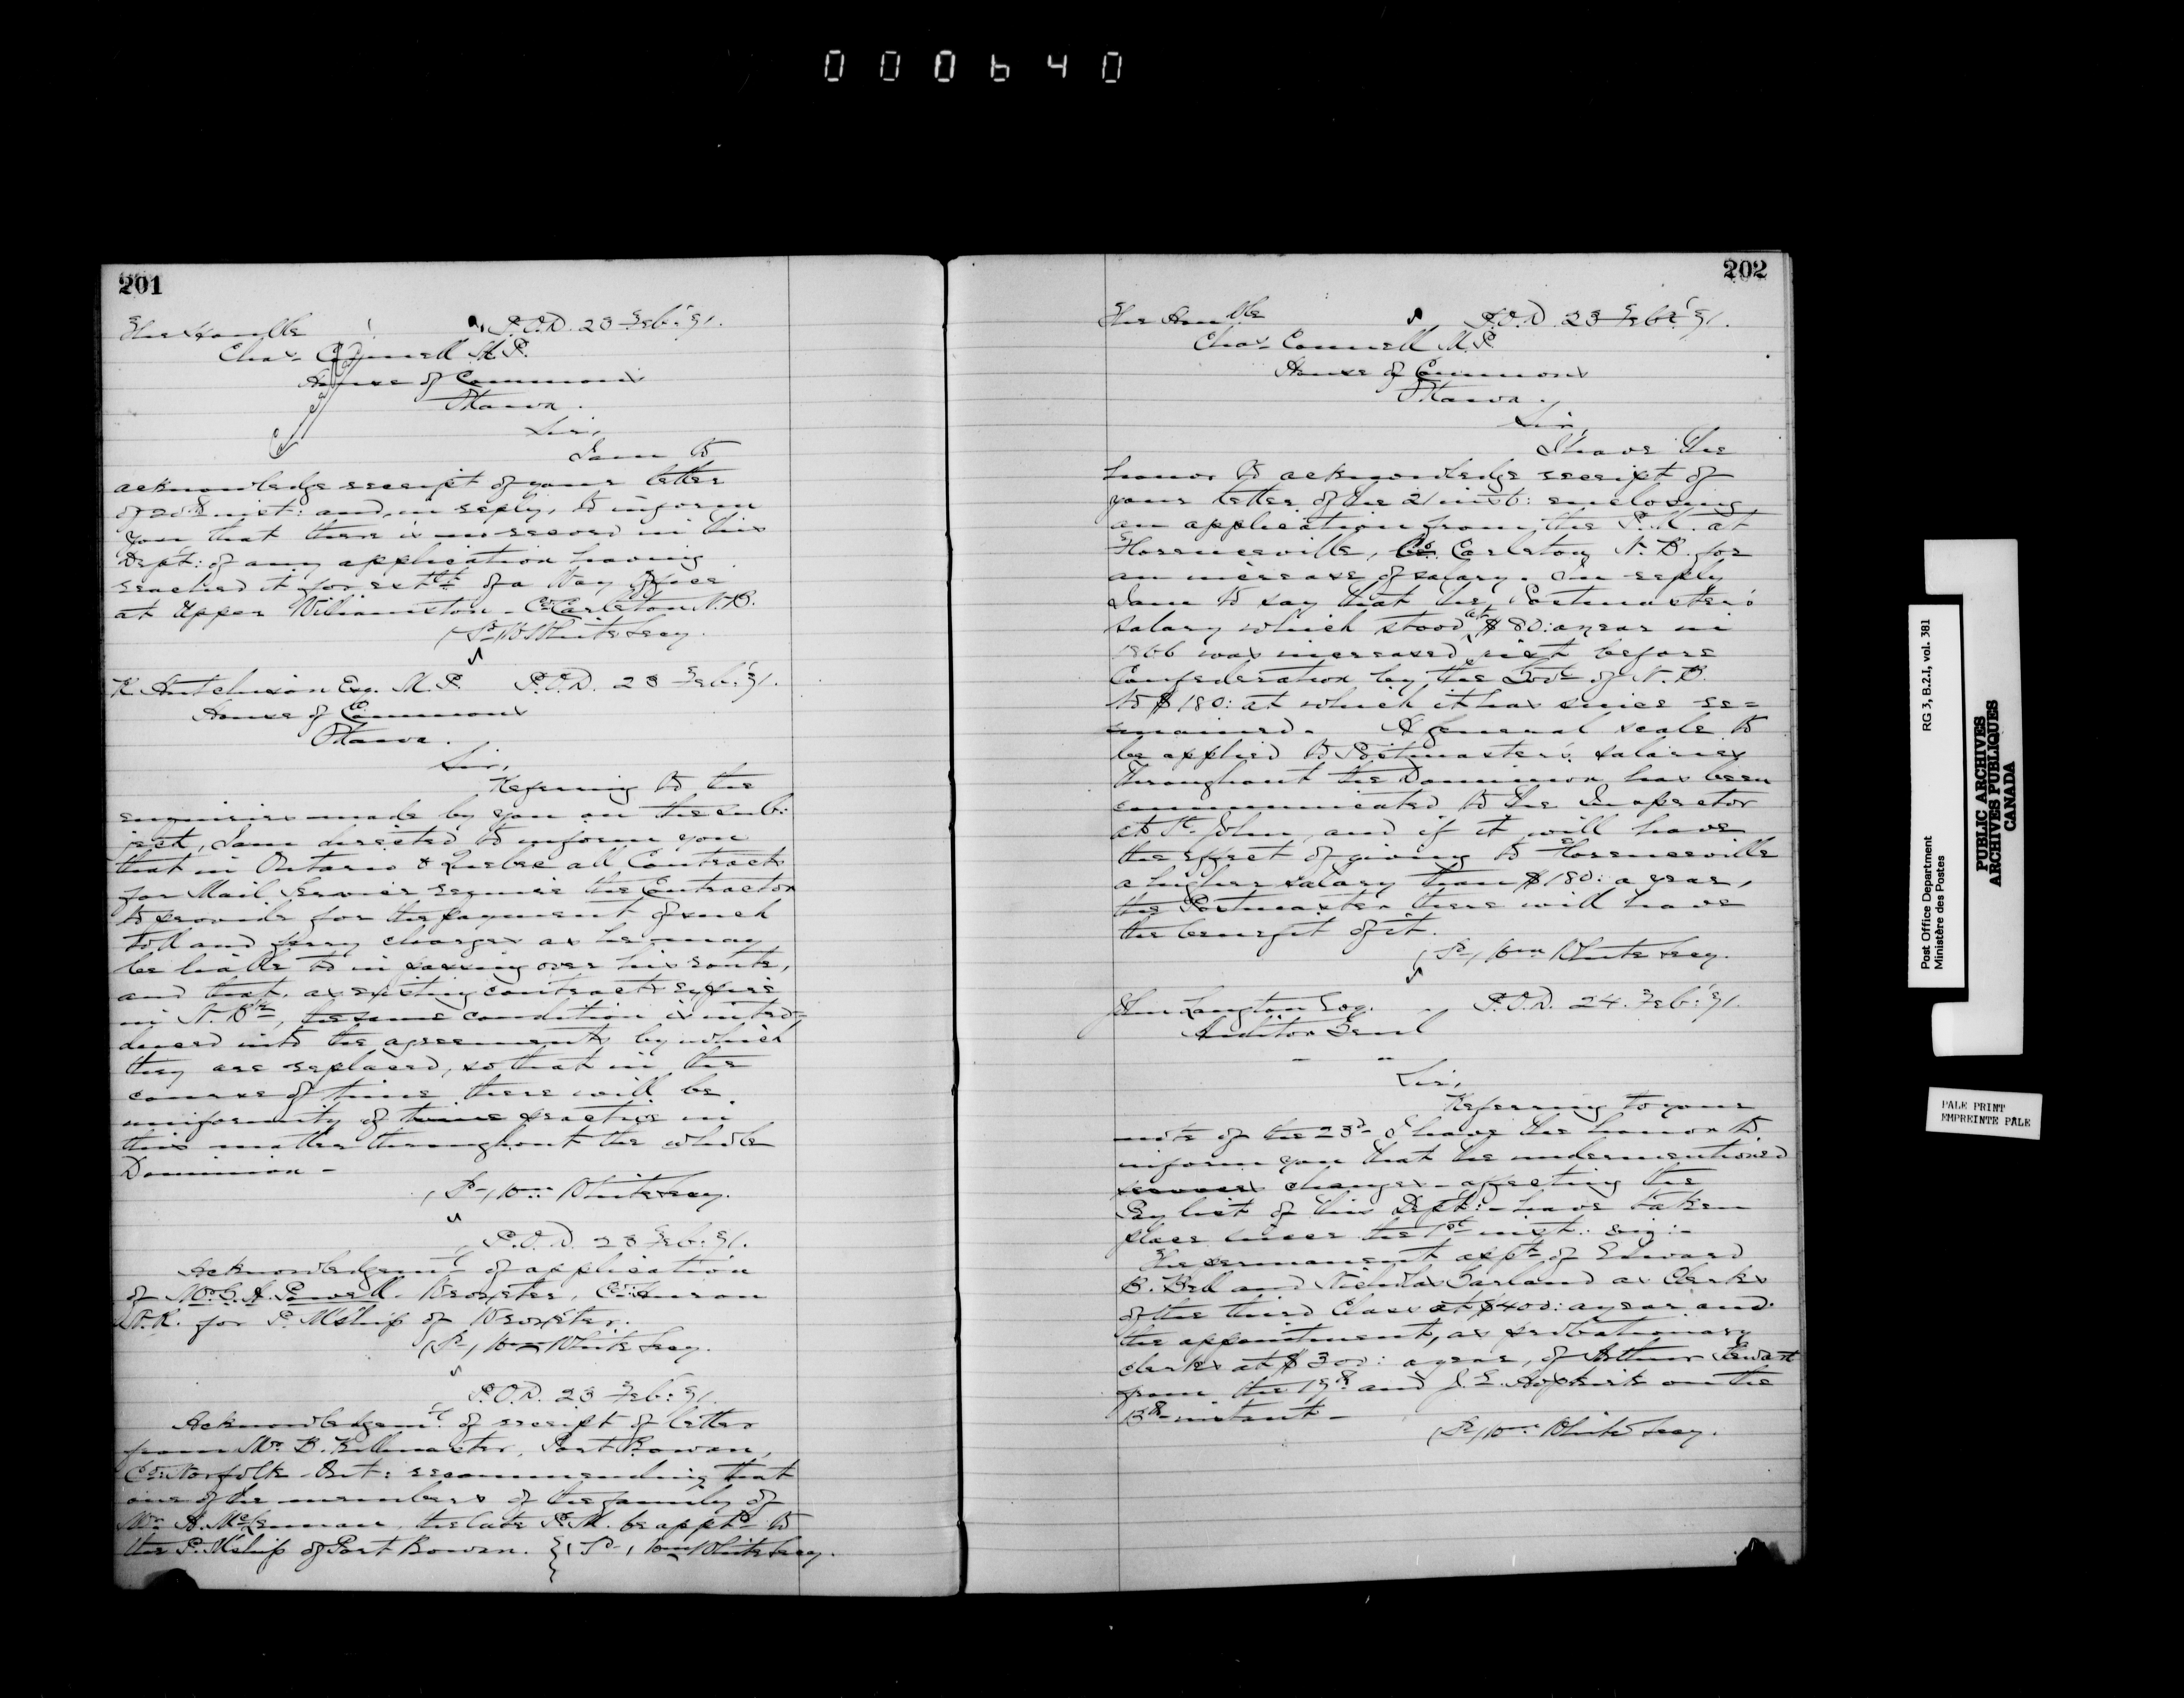 000640
201
The Honble P.O.D. 23 Feb: '71.
Chas Connell M.P.
House of Commons
Ottawa.
Sir,
I am to
acknowledge receipt of your letter
of 20th inst: and, in reply, to inform
you that there is no record in this
Dept: of any application having
reached it for estt of a Way Office
at Upper Williamston - Co: Carleton N.B.
(Sd) Wm White Secy.
R. Hutchison Esq. M.P. P.O.D. 23 Feb: '71.
House of Commons
Ottawa.
Sir,
Referring to the
enquiries made by you on the sub:
ject, I am directed to inform you
that in Ontario & Quebec all Contracts
for Mail Service require the Contractor
to provide for the payment of such
toll and ferry charges as he may
be liable to in passing over his route,
and that, as existing contracts expire
in N. Bk, the same condition is intro=
duced into the agreements by which
they are replaced, so that in the
course of time there will be
uniformity of practice in
this matter throughout the whole
Dominion -
(Sd) Wm White Secy.
P.O.D. 23 Feb: '71.
Acknowledgemt of application
of Mr. G. A. Powell. Wroxeter, Co: Huron
N.R. for P. Mship of Wroxeter.
(Sd) Wm White Secy.
P.O.D. 23 Feb: '71.
Acknowledgemt of receipt of letter
from Mr. B. Killmaster, Port Rowan,
Co: Norfolk. Ont: recommending that
one of the members of the family of
Mr. A. McLennan, the late P.M. be apptd to
the P. Mship of Port Rowan. (Sd) Wm White Secy.
202
The Honble P.O.D. 23 Feb: '71.
Chas Connell M.P.
House of Commons
Ottawa.
Sir,
I have the
honor to acknowledge receipt of
your letter of the 21 inst: enclosing
an application from the P.M. at
Florenceville, Co. Carleton N.B. for
an increase of salary. In reply
I am to say that the Postmaster's
salary which stood at $80: a year in
1866 was increased just before
Confederation by the Govt of N.B.
to $180: at which it has since re=
mained. A general scale to
be applied to Postmaster's salaries
throughout the Dominion has been
communicated to the Inspector
at St. John, and if it will have
the effect of giving to Florenceville
a higher salary than $180: a year,
the Postmaster there will have
the benefit of it.
(Sd) Wm White Secy.
John Langton Esq. P.O.D. 24. Feb: '71.
Auditor Genl
" "
Sir,
Referring to your
note of the 23d I have the honor to
inform you that the undermentioned
changes - affecting the
Pay list of this Dept: - have taken
place since the 1st inst: viz: -
The permanent appt of Edward
B. Bell and Nicholas Garland as Clerks
of the third Class at $400: a year and
the appointment, as probationary
clerks at $300: a year, of Arthur Stewart
from the 17th and J. E. Hopkirk on the
13th instant -
(Sd) Wm White Secy.
Post Office Department RG 3, B.2.I, vol. 381
Ministère des Postes
PUBLIC ARCHIVES
ARCHIVES PUBLIQUES
CANADA
PALE PRINT
EMPREINTE PALE